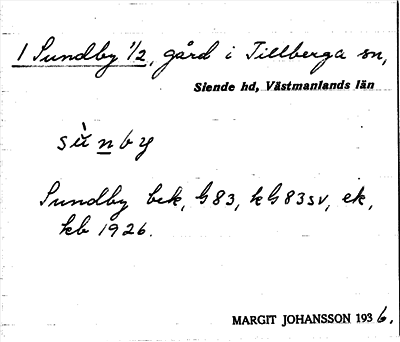 1 Sundby 1/2, gård i Tillberga sn,
Siende hd, Västmanlands län
sùnby
Sundby bek, G83, kG83sv, ek,
kb 1926.
MARGIT JOHANSSON 1936.